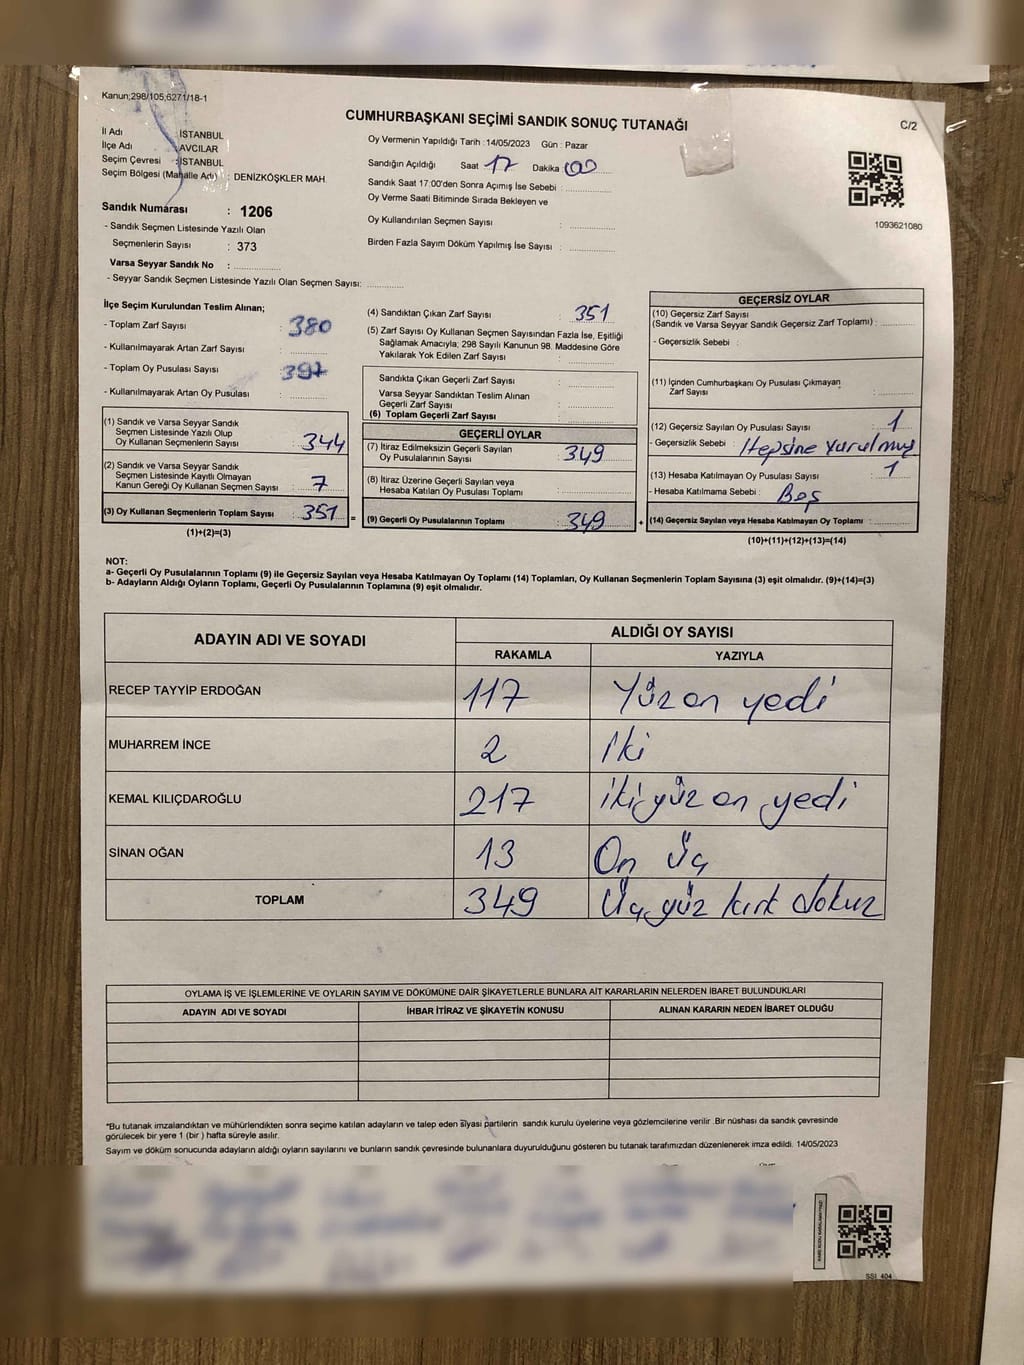 Kanun;298/105;6271/18-1
CUMHURBAŞKANI SEÇİMİ SANDIK SONUÇ TUTANAĞI
C/2
İl Adı : İSTANBUL
İlçe Adı : AVCILAR
Seçim Çevresi : İSTANBUL
Seçim Bölgesi (Mahalle Adı) : DENİZKÖŞKLER MAH.
Oy Vermenin Yapıldığı Tarih : 14/05/2023 Gün : Pazar
Sandığın Açıldığı Saat 17 Dakika 00
Sandık Saat 17:00'den Sonra Açımış İse Sebebi :
Oy Verme Saati Bitiminde Sırada Bekleyen ve
Oy Kullandırılan Seçmen Sayısı :
Birden Fazla Sayım Döküm Yapılmış İse Sayısı :
1093621080
Sandık Numarası : 1206
- Sandık Seçmen Listesinde Yazılı Olan
Seçmenlerin Sayısı : 373
Varsa Seyyar Sandık No :
- Seyyar Sandık Seçmen Listesinde Yazılı Olan Seçmen Sayısı:
İlçe Seçim Kurulundan Teslim Alınan;
- Toplam Zarf Sayısı : 380
- Kullanılmayarak Artan Zarf Sayısı :
- Toplam Oy Pusulası Sayısı :
- Kullanılmayarak Artan Oy Pusulası :
(1) Sandık ve Varsa Seyyar Sandık
Seçmen Listesinde Yazılı Olup
Oy Kullanan Seçmenlerin Sayısı : 344
(2) Sandık ve Varsa Seyyar Sandık
Seçmen Listesinde Kayıtlı Olmayan
Kanun Gereği Oy Kullanan Seçmen Sayısı : 7
(3) Oy Kullanan Seçmenlerin Toplam Sayısı : 351 =
(1)+(2)=(3)
(4) Sandıktan Çıkan Zarf Sayısı : 351
(5) Zarf Sayısı Oy Kullanan Seçmen Sayısından Fazla İse, Eşitliği
Sağlamak Amacıyla; 298 Sayılı Kanunun 98. Maddesine Göre
Yakılarak Yok Edilen Zarf Sayısı :
Sandıkta Çıkan Geçerli Zarf Sayısı :
Varsa Seyyar Sandıktan Teslim Alınan
Geçerli Zarf Sayısı :
(6) Toplam Geçerli Zarf Sayısı :
GEÇERLİ OYLAR
(7) İtiraz Edilmeksizin Geçerli Sayılan
Oy Pusulalarının Sayısı : 349
(8) İtiraz Üzerine Geçerli Sayılan veya
Hesaba Katılan Oy Pusulası Toplamı :
(9) Geçerli Oy Pusulalarının Toplamı : 349 +
GEÇERSİZ OYLAR
(10) Geçersiz Zarf Sayısı
(Sandık ve Varsa Seyyar Sandık Geçersiz Zarf Toplamı) :
- Geçersizlik Sebebi :
(11) İçinden Cumhurbaşkanı Oy Pusulası Çıkmayan
Zarf Sayısı :
(12) Geçersiz Sayılan Oy Pusulası Sayısı : 1
- Geçersizlik Sebebi : Hepsine vurulmuş
(13) Hesaba Katılmayan Oy Pusulası Sayısı : 1
- Hesaba Katılmama Sebebi : Boş
(14) Geçersiz Sayılan veya Hesaba Katılmayan Oy Toplamı :
(10)+(11)+(12)+(13)=(14)
NOT:
a- Geçerli Oy Pusulalarının Toplamı (9) ile Geçersiz Sayılan veya Hesaba Katılmayan Oy Toplamı (14) Toplamları, Oy Kullanan Seçmenlerin Toplam Sayısına (3) eşit olmalıdır. (9)+(14)=(3)
b- Adayların Aldığı Oyların Toplamı, Geçerli Oy Pusulalarının Toplamına (9) eşit olmalıdır.
ADAYIN ADI VE SOYADI
ALDIĞI OY SAYISI
RAKAMLA YAZIYLA
RECEP TAYYİP ERDOĞAN 117 Yüz on yedi
MUHARREM İNCE 2 iki
KEMAL KILIÇDAROĞLU 217 iki yüz on yedi
SİNAN OĞAN 13 On üç
TOPLAM 349 Üç yüz kırk dokuz
OYLAMA İŞ VE İŞLEMLERİNE VE OYLARIN SAYIM VE DÖKÜMÜNE DAİR ŞİKAYETLERLE BUNLARA AİT KARARLARIN NELERDEN İBARET BULUNDUKLARI
ADAYIN ADI VE SOYADI İHBAR İTİRAZ VE ŞİKAYETİN KONUSU ALINAN KARARIN NEDEN İBARET OLDUĞU
*Bu tutanak imzalandıktan ve mühürlendikten sonra seçime katılan adayların ve talep eden siyasi partilerin sandık kurulu üyelerine veya gözlemcilerine verilir .Bir nüshası da sandık çevresinde
görülecek bir yere 1 (bir ) hafta süreyle asılır.
Sayım ve döküm sonucunda adayların aldığı oyların sayılarını ve bunların sandık çevresinde bulunanlara duyurulduğunu gösteren bu tutanak tarafımızdan düzenlenerek imza edildi. 14/05/2023
SSI_404